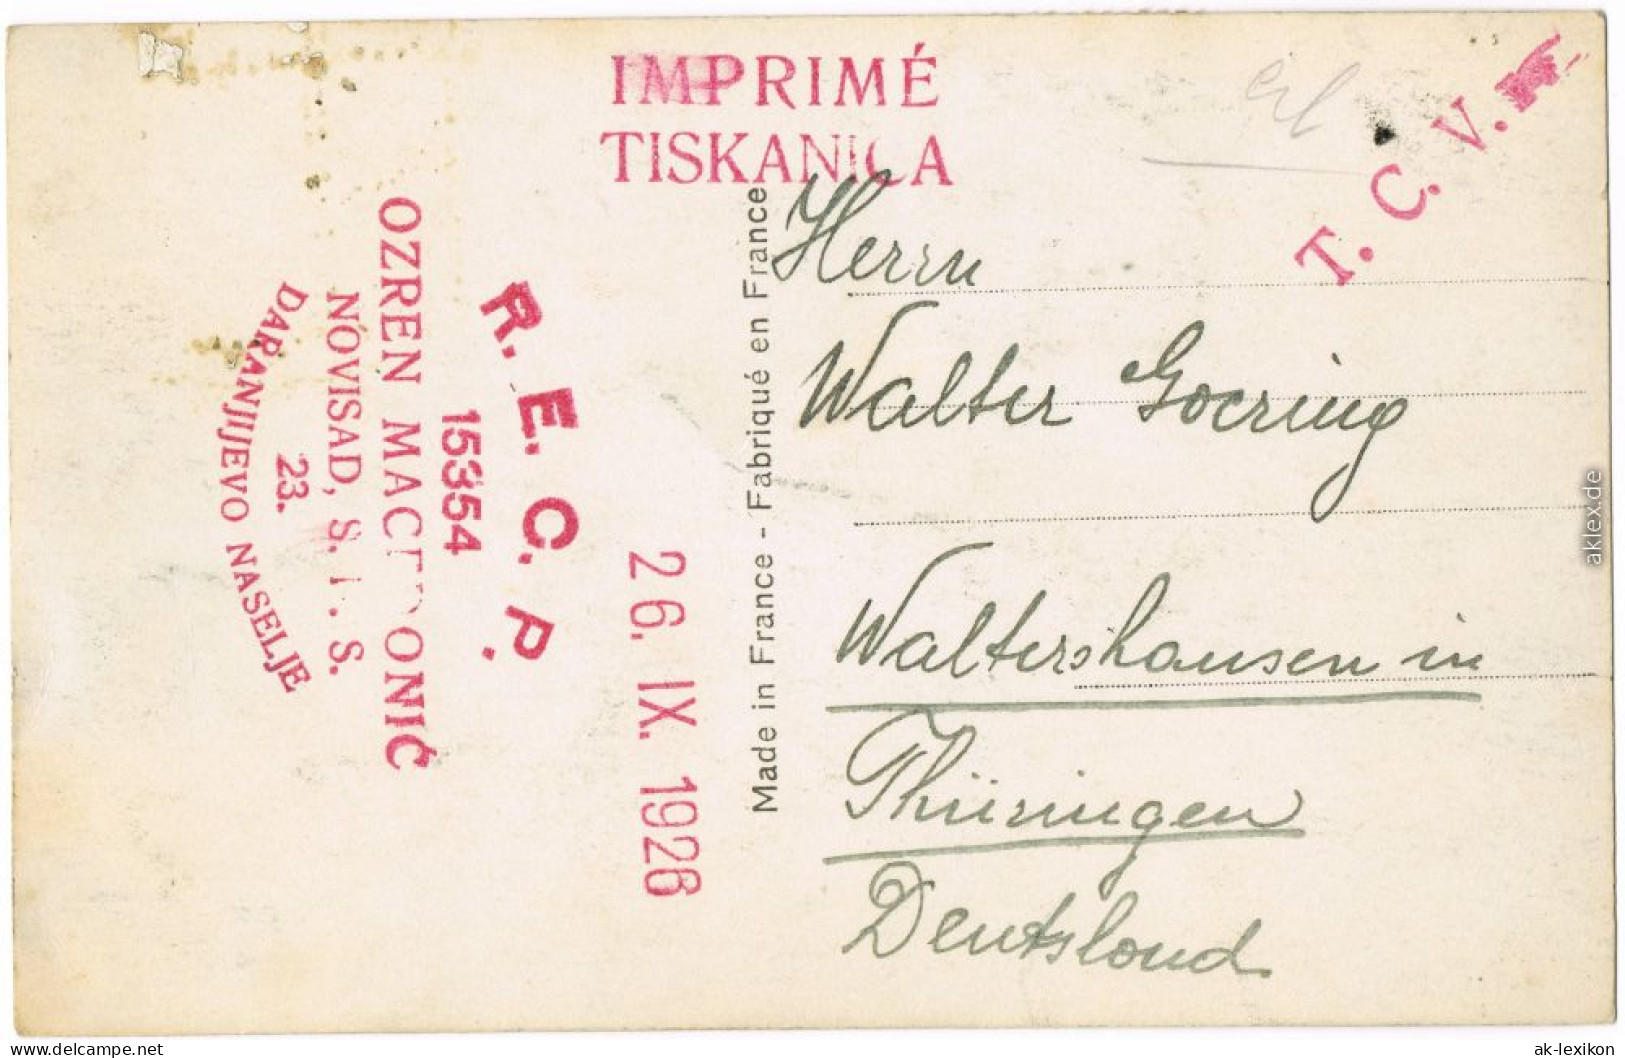 IMPRIMÉ
TISKANICA
T. C. V.
R. E. C. P.
15354
OZREN
NOVISAD, S. S.
23.
DARANJIJEVO NASELJE
26. IX. 1926
Made in France - Fabriqué en France
Herrn
Walter Goering
Waltershausen in
Thüringen
Deutsloud
aklex.de
delcampe.net
ak-lexikon